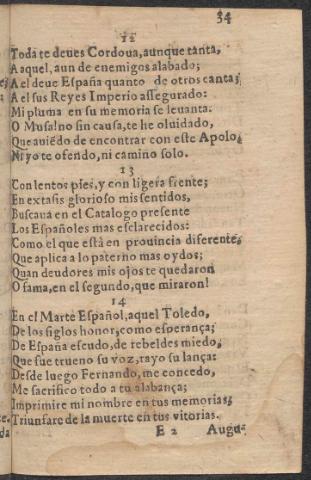 34
12
Toda te deues Cordoua, aunque tanta,
A aquel, aun de enemigos alabado;
A el deue España quanto de otros canta;
A el sus Reyes Imperio assegurado:
Mi pluma en su memoria se leuanta:
O Musa! no sin causa, te he oluidado,
Que auiẽdo de encontrar con este Apolo,
Ni yo te ofendo, ni camino solo.
13
Con lentos pies, y con ligera frente;
En extasis glorioso mis sentidos,
Buscaua en el Catalogo presente
Los Españoles mas esclarecidos:
Como el que està en prouincia diferente,
Que aplica a lo paterno mas oydos;
Quan deudores mis ojos te quedaron
O fama, en el segundo, que miraron!
14
En el Marte Español, aquel Toledo,
De los siglos honor, como esperança;
De España escudo, de rebeldes miedo,
Que fue trueno su voz, rayo su lança:
Desde luego Fernando, me concedo,
Me sacrifico todo a tu alabança;
Imprimire mi nombre en tus memorias,
Triunfare de la muerte en tus vitorias.
E 2 Augu-